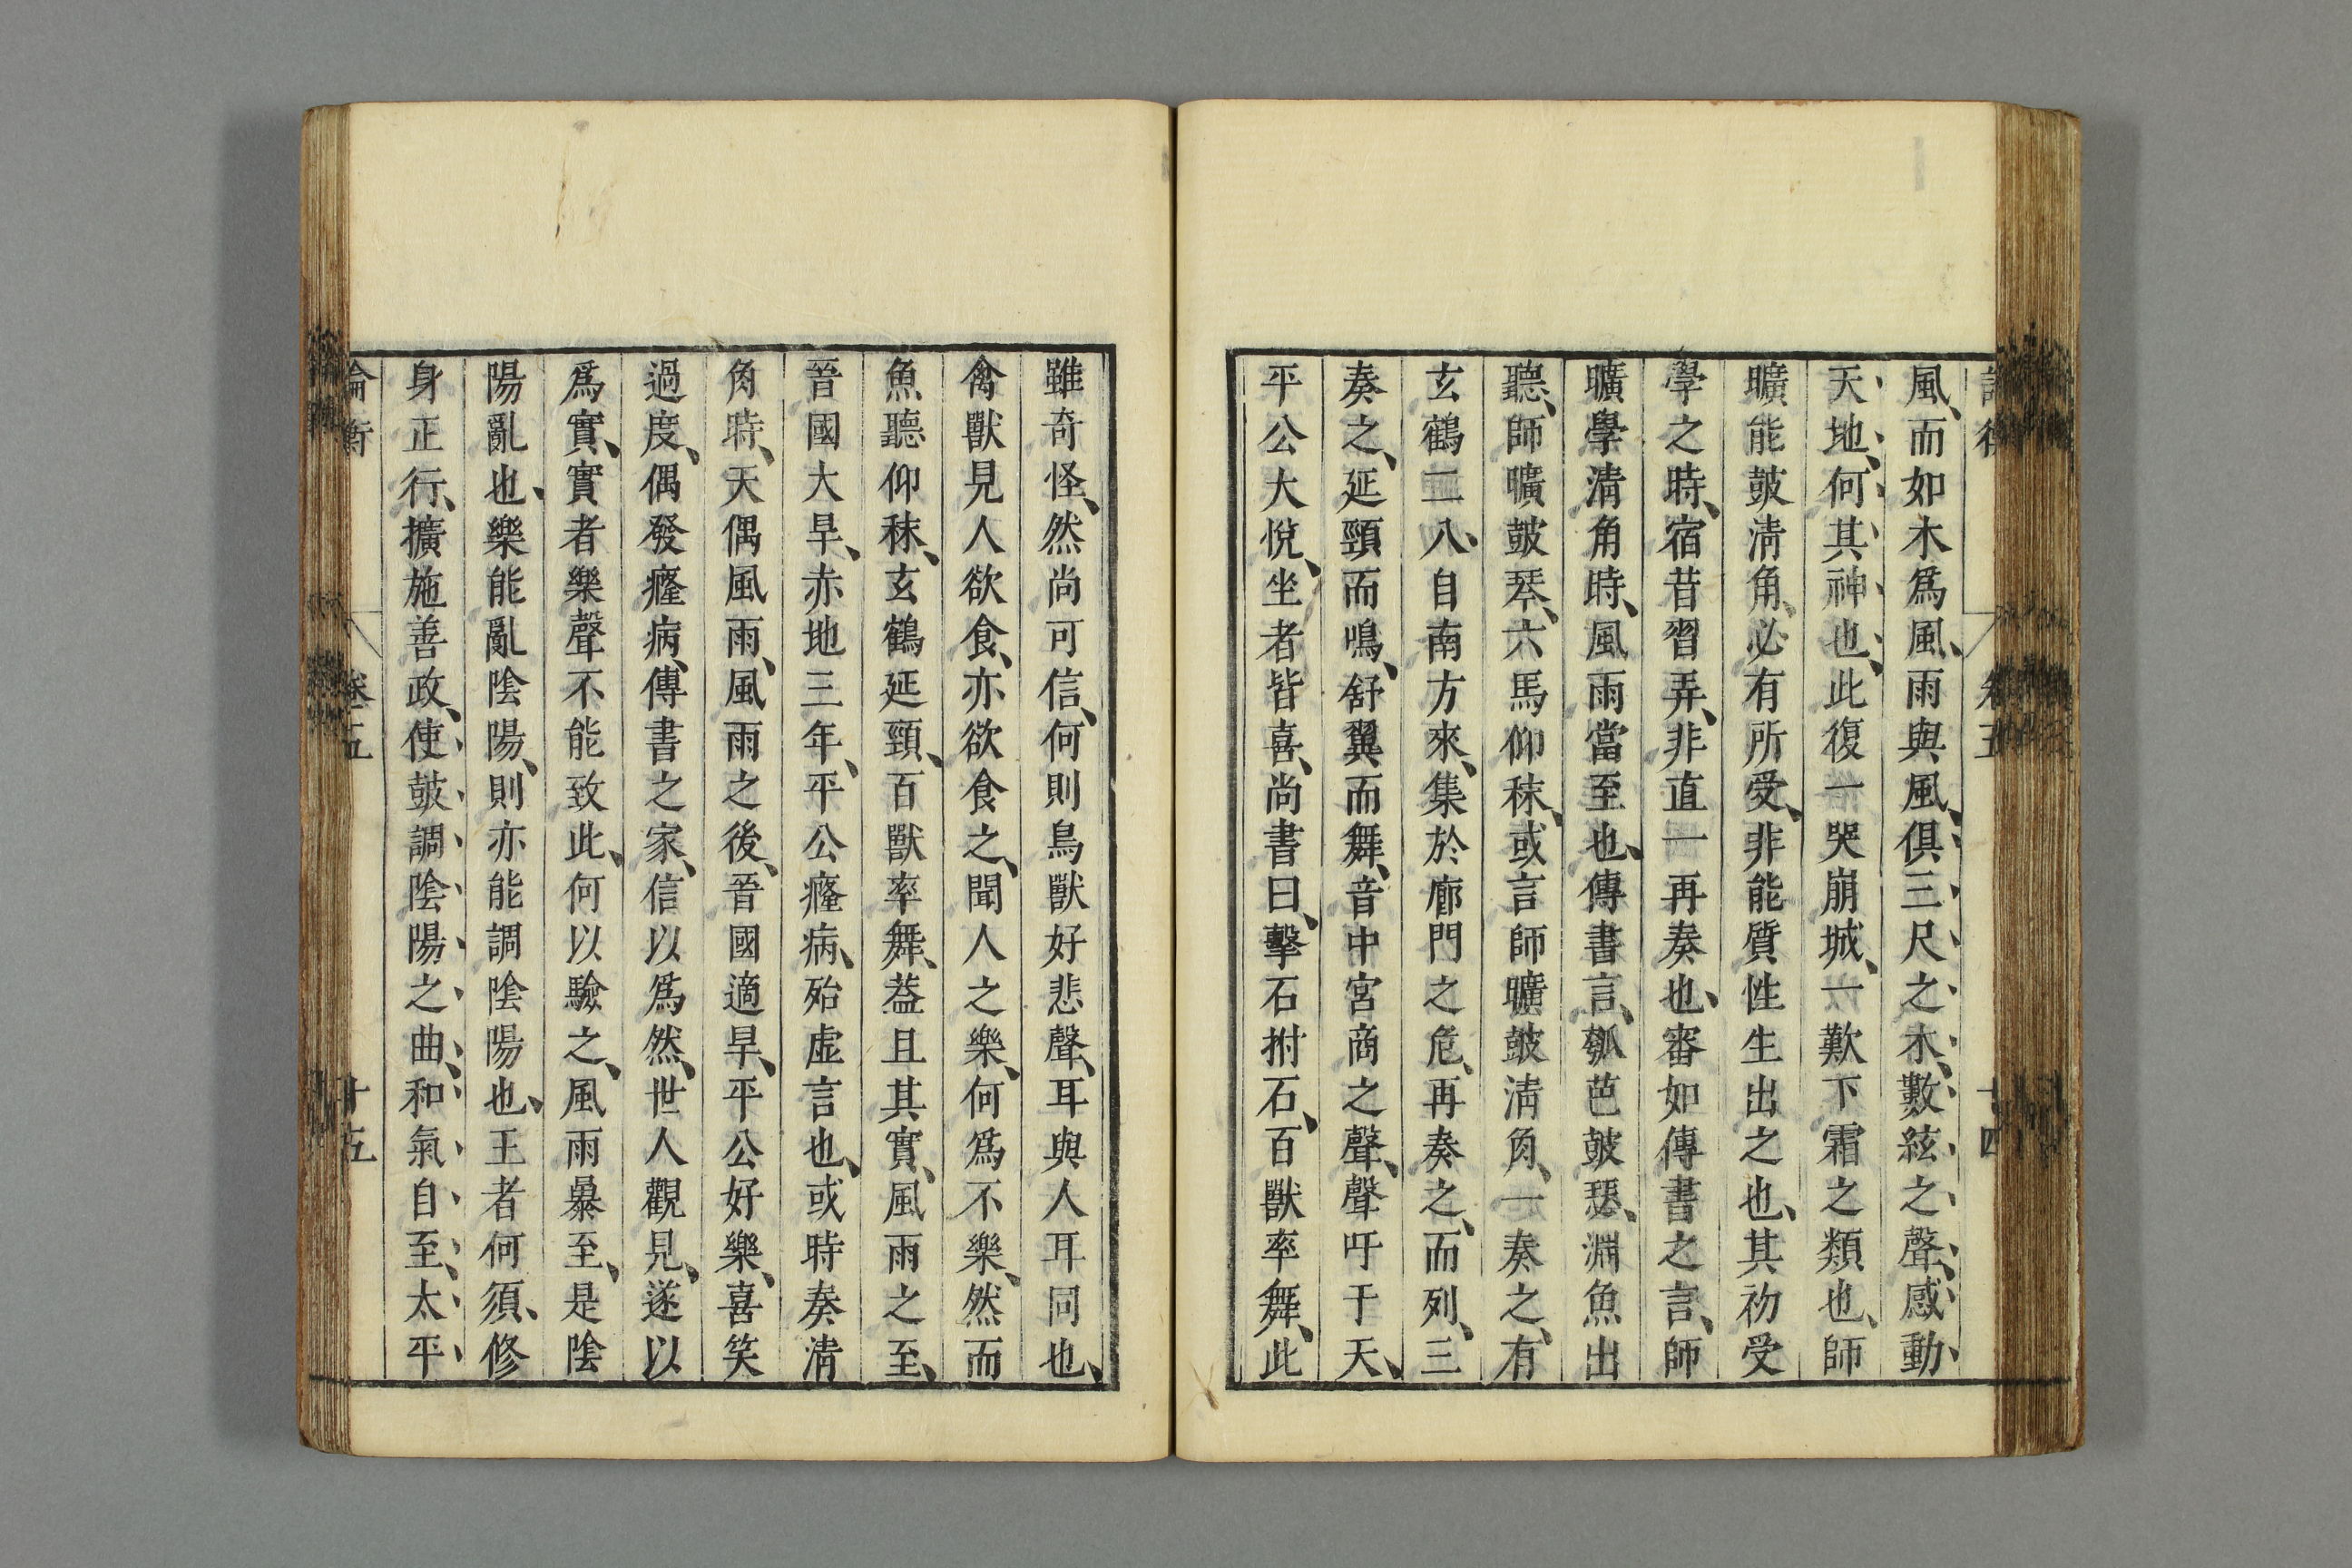 卷五 十四
風、而如木爲風、雨與風、俱三尺之木、數絃之聲、感動
天地、何其神也、此復一哭崩城、一歎下霜之類也、師
曠能皷淸角、必有所受、非能質性生出之也、其初受
學之時、宿昔習弄、非直一再奏也、審如傳書之言、師
曠學淸角時、風雨當至也、傳書言、瓠芭皷瑟、淵魚出
聽、師曠皷琴、六馬仰秣、或言師曠皷淸角、一奏之、有
玄鶴二八、自南方來、集於廊門之危、再奏之、而列、三
奏之、延頸而鳴、舒翼而舞、音中宮商之聲、聲吁于天、
平公大悅、坐者皆喜、尚書曰、擊石拊石、百獸率舞、此
雖奇怪、然尚可信、何則鳥獸好悲聲、耳與人耳同也、
禽獸見人欲食、亦欲食之、聞人之樂、何爲不樂、然而
魚聽仰秣、玄鶴延頸、百獸率舞、葢且其實、風雨之至、
晉國大旱、赤地三年、平公癃病、殆虛言也、或時奏淸
角時、天偶風雨、風雨之後、晉國適旱、平公好樂、喜笑
過度、偶發癃病、傳書之家、信以爲然、世人觀見、遂以
爲實、實者樂聲不能致此、何以驗之、風雨暴至、是陰
陽亂也、樂能亂陰陽、則亦能調陰陽也、王者何須、修
身正行、擴施善政、使皷調陰陽之曲、和氣自至、太平
論衡 卷五 十五